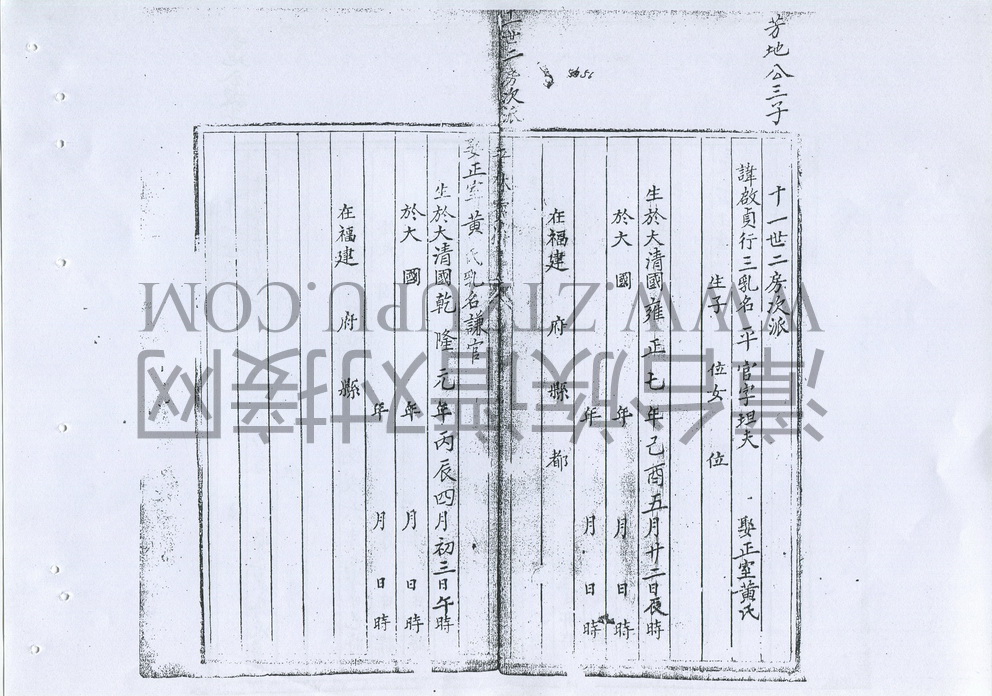 芳地公三子
十一世二房次派
諱啟貞行三乳名平官字坦夫 娶正室黃氏
生子 位女 位
生於大清國雍正七年己酉五月廿二日辰時
於大 國 年 月 日 時
年 月 日 時
在福建 府 縣 都
十一世二房次派
娶正室黃氏乳名謙官
生於大清國乾隆元年丙辰四月初三日午時
於大 國 年 月 日 時
年 月 日 時
在福建 府 縣
WWW.ZTZUPU.COM
漳台族谱对接网